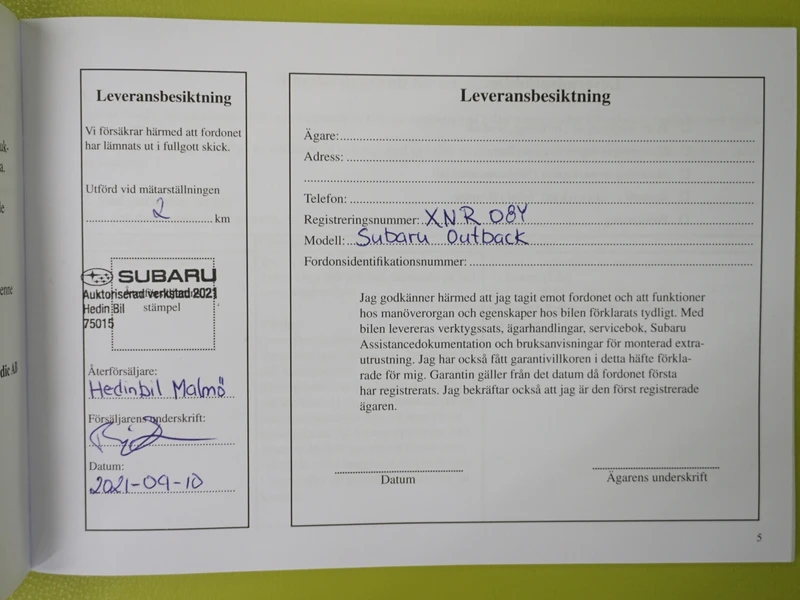 uk-
a.
le
enne
dic AB
Leveransbesiktning
Vi försäkrar härmed att fordonet
har lämnats ut i fullgott skick.
Utförd vid mätarställningen
2 km
SUBARU
Auktoriserad verkstad 2021
Hedin Bil
stämpel
75015
Återförsäljare:
Hedinbil Malmö
Försäljarens underskrift:
Datum:
2021-09-10
Leveransbesiktning
Ägare:
Adress:
Telefon:
Registreringsnummer: XNR 08Y
Modell: Subaru Outback
Fordonsidentifikationsnummer:
Jag godkänner härmed att jag tagit emot fordonet och att funktioner
hos manöverorgan och egenskaper hos bilen förklarats tydligt. Med
bilen levereras verktygssats, ägarhandlingar, servicebok, Subaru
Assistancedokumentation och bruksanvisningar för monterad extra-
utrustning. Jag har också fått garantivillkoren i detta häfte förkla-
rade för mig. Garantin gäller från det datum då fordonet första
har registrerats. Jag bekräftar också att jag är den först registrerade
ägaren.
Datum
Ägarens underskrift
5